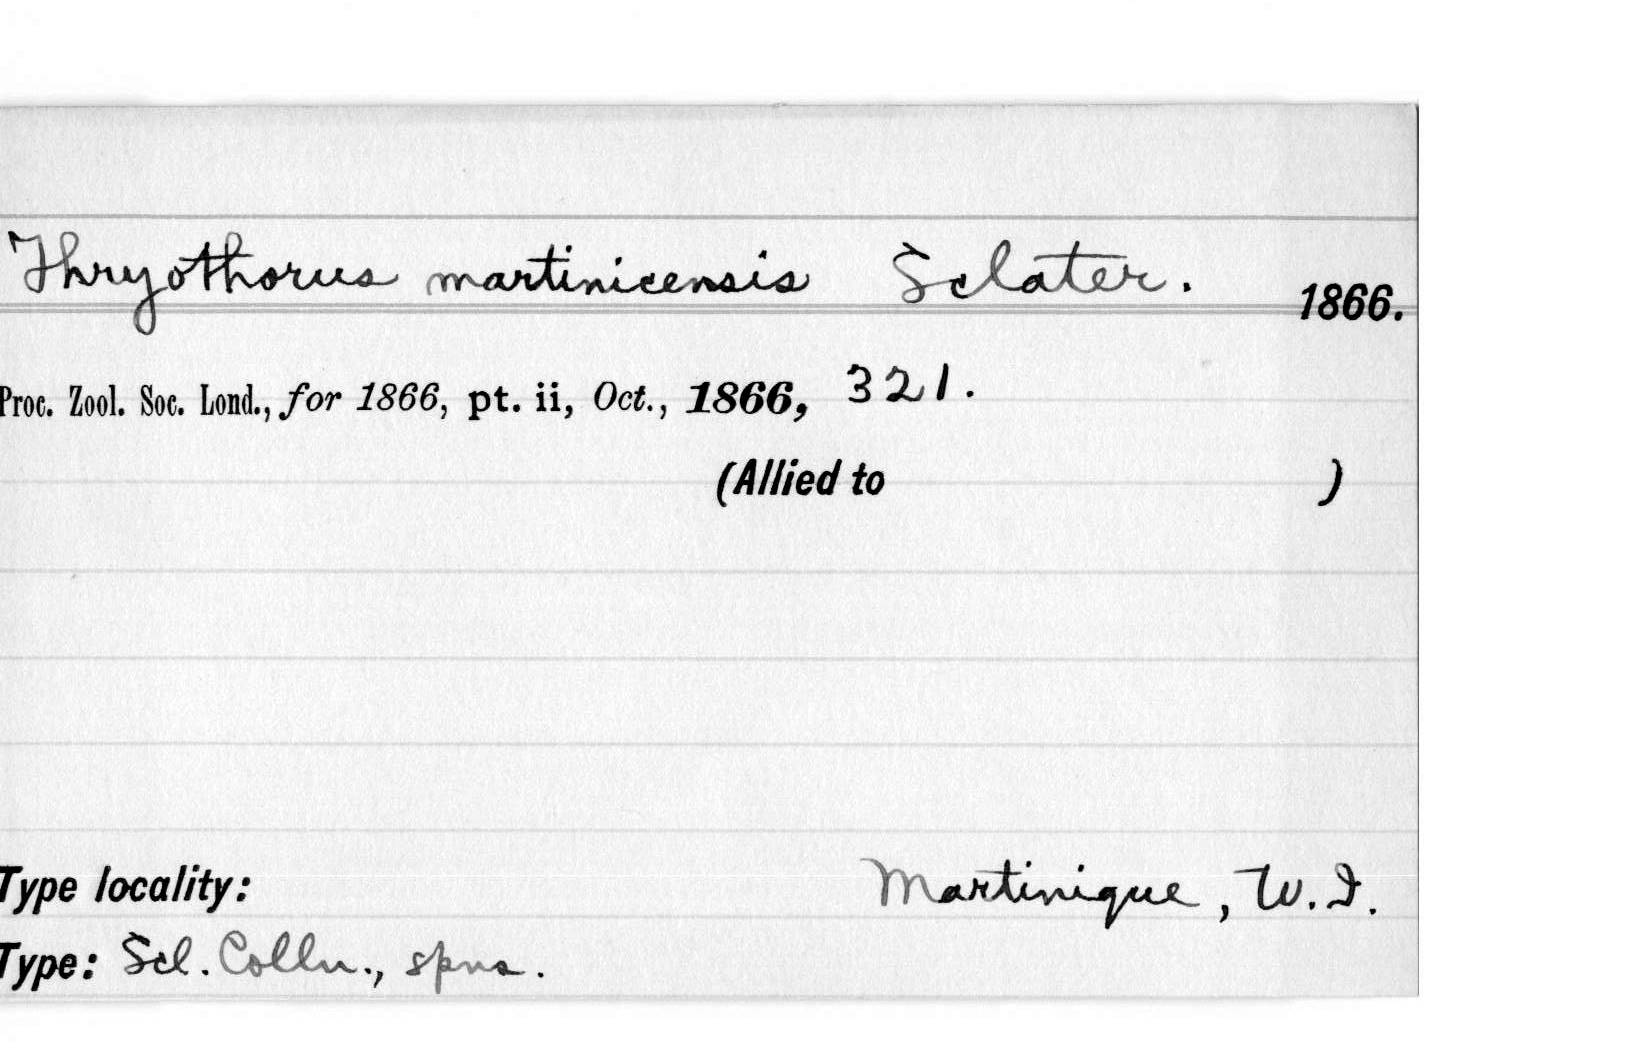 Thryothorus martinicensis Sclater. 1866.
Proc. Zool. Soc. Lond., for 1866, pt. ii, Oct., 1866, 321.
(Allied to )
Type locality: Martinique, W.I.
Type: Scl. Colln., spns.